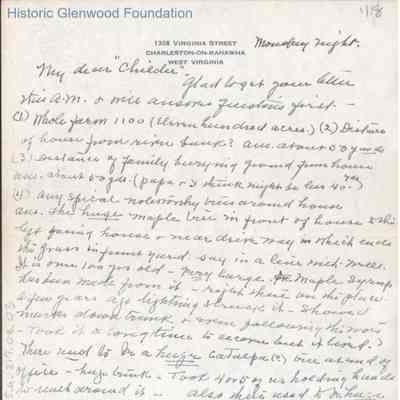 Historic Glenwood Foundation
118
1308 VIRGINIA STREET
CHARLESTON-ON-KANAWHA
WEST VIRGINIA
Monday night.
My dear "Childer"
Glad to get your letter
this A.M. & will answer questions first -
(1) Whole farm 1100 (Eleven hundred acres.) (2) Distance
of house from river bank? ans. about 50 yards
(3) Distance of family burying ground from house
ans. about 50 yds. (papa & I think might be less 40 yds)
(4) Any special noteworthy trees around house
ans. The huge maple tree in front of house to the
left facing house & near drive way in which ends
the grass in front yard. Say in a line with
It is over 100 yrs old - very large. Maple Syrup
has been made from it - right there on the place
a few years ago lightning struck it - showed
marks down trunk & even following the roots
- Took it a long time to overcome but it lived.)
There used to be a huge Catalpa (?) tree at end of
office - huge trunk - Took 4 or 5 of us holding hands
to reach around it - also there used to be huge